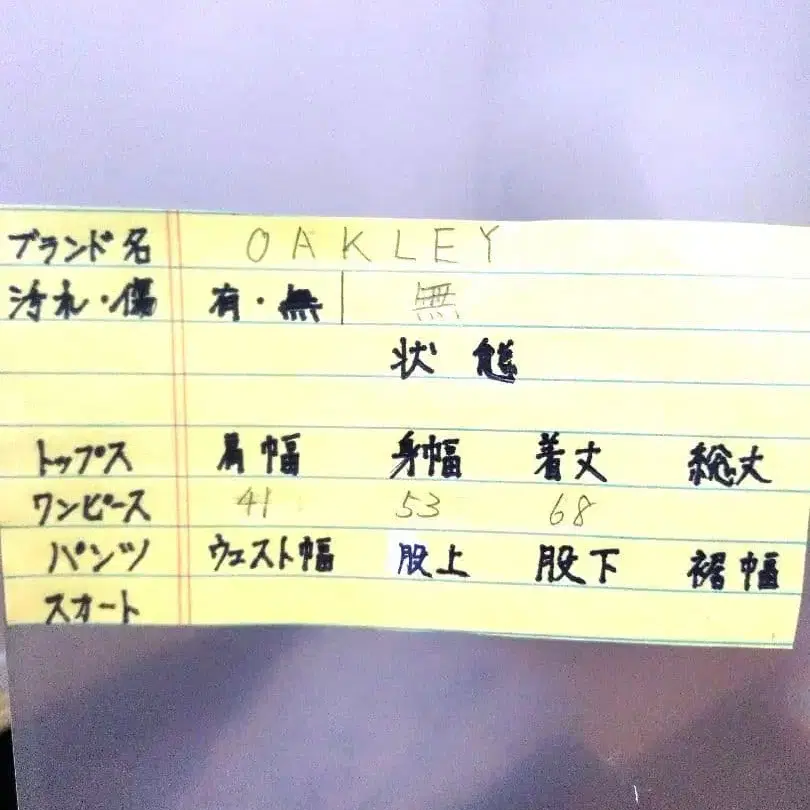 ブランド名 OAKLEY
汚れ・傷 有・無 無
状態
トップス 肩幅 身幅 着丈 総丈
ワンピース 41 53 68
パンツ ウェスト幅 股上 股下 裾幅
スカート